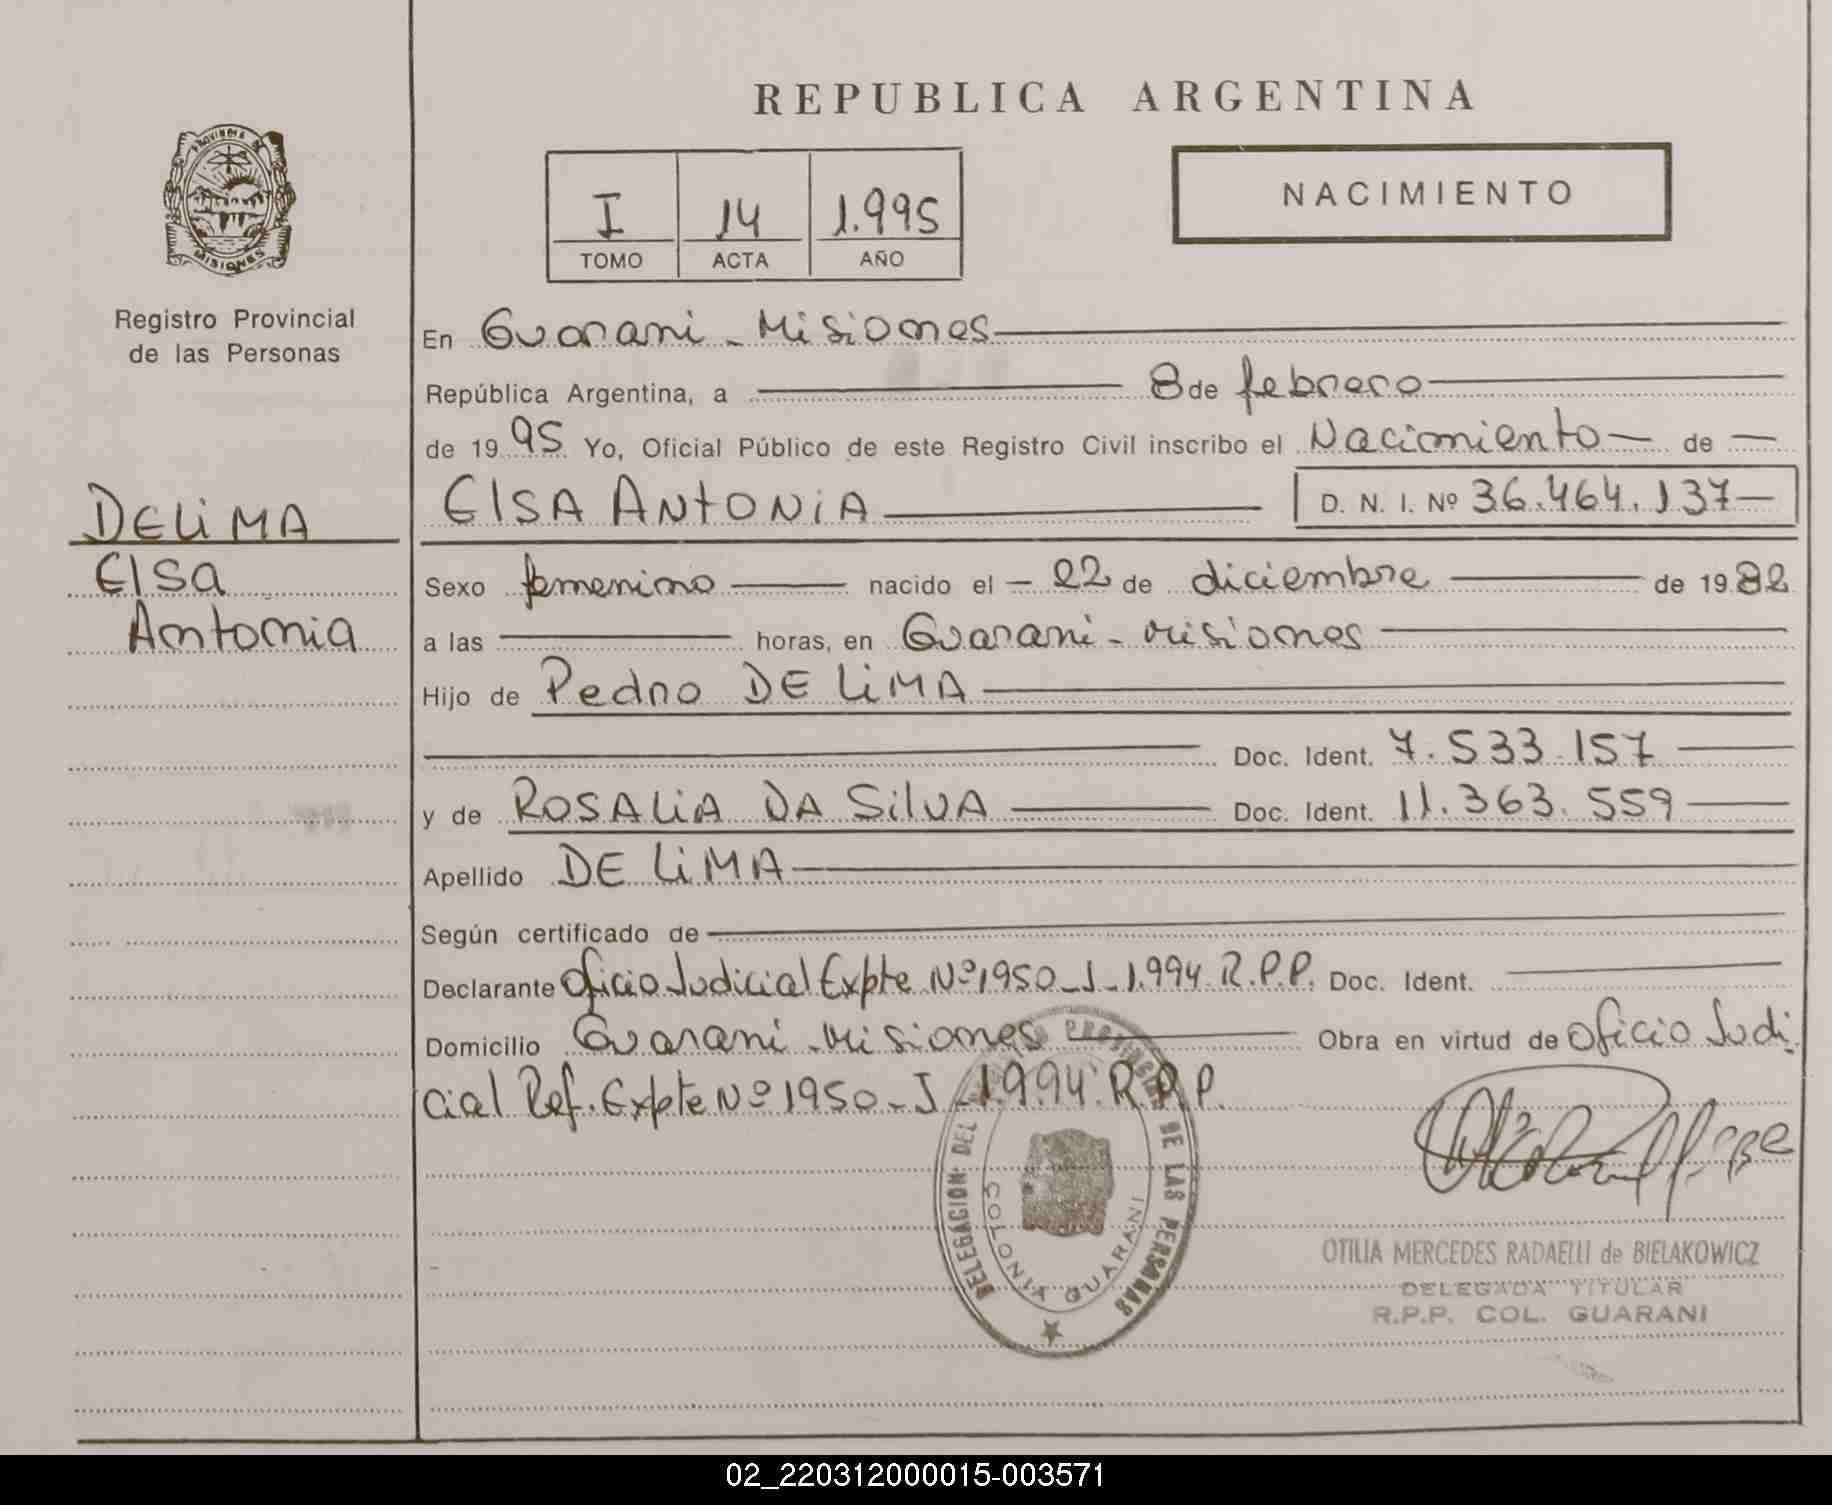 REPUBLICA ARGENTINA
PROVINCIA DE
MISIONES
Registro Provincial
de las Personas
I 14 1.995
TOMO ACTA AÑO
NACIMIENTO
En Guarani - Misiones
República Argentina, a 8 de febrero
de 1995 Yo, Oficial Público de este Registro Civil inscribo el Nacimiento de
DELiMA
Elsa
Antonia
ElSA ANtONiA
D. N. I. Nº 36.464.137
Sexo femenino nacido el 22 de diciembre de 1982
a las horas, en Guarani - Misiones
Hijo de Pedro DE LiMA
Doc. Ident. 7.533.157
y de ROSALiA DA SilVA Doc. Ident. 11.363.559
Apellido DE LiMA
Según certificado de
Declarante Oficio Judicial Expte Nº 1950-J-1.994.R.P.P. Doc. Ident.
Domicilio Guarani - Misiones Obra en virtud de Oficio Judi
cial Ref. Expte Nº 1950-J-1994.R.P.P.
DELEGACION DEL PROVINCIAL DE LAS PERSONAS
COLONIA GUARANI
OTILIA MERCEDES RADAELLI de BIELAKOWICZ
DELEGADA TITULAR
R.P.P. COL. GUARANI
02_220312000015-003571